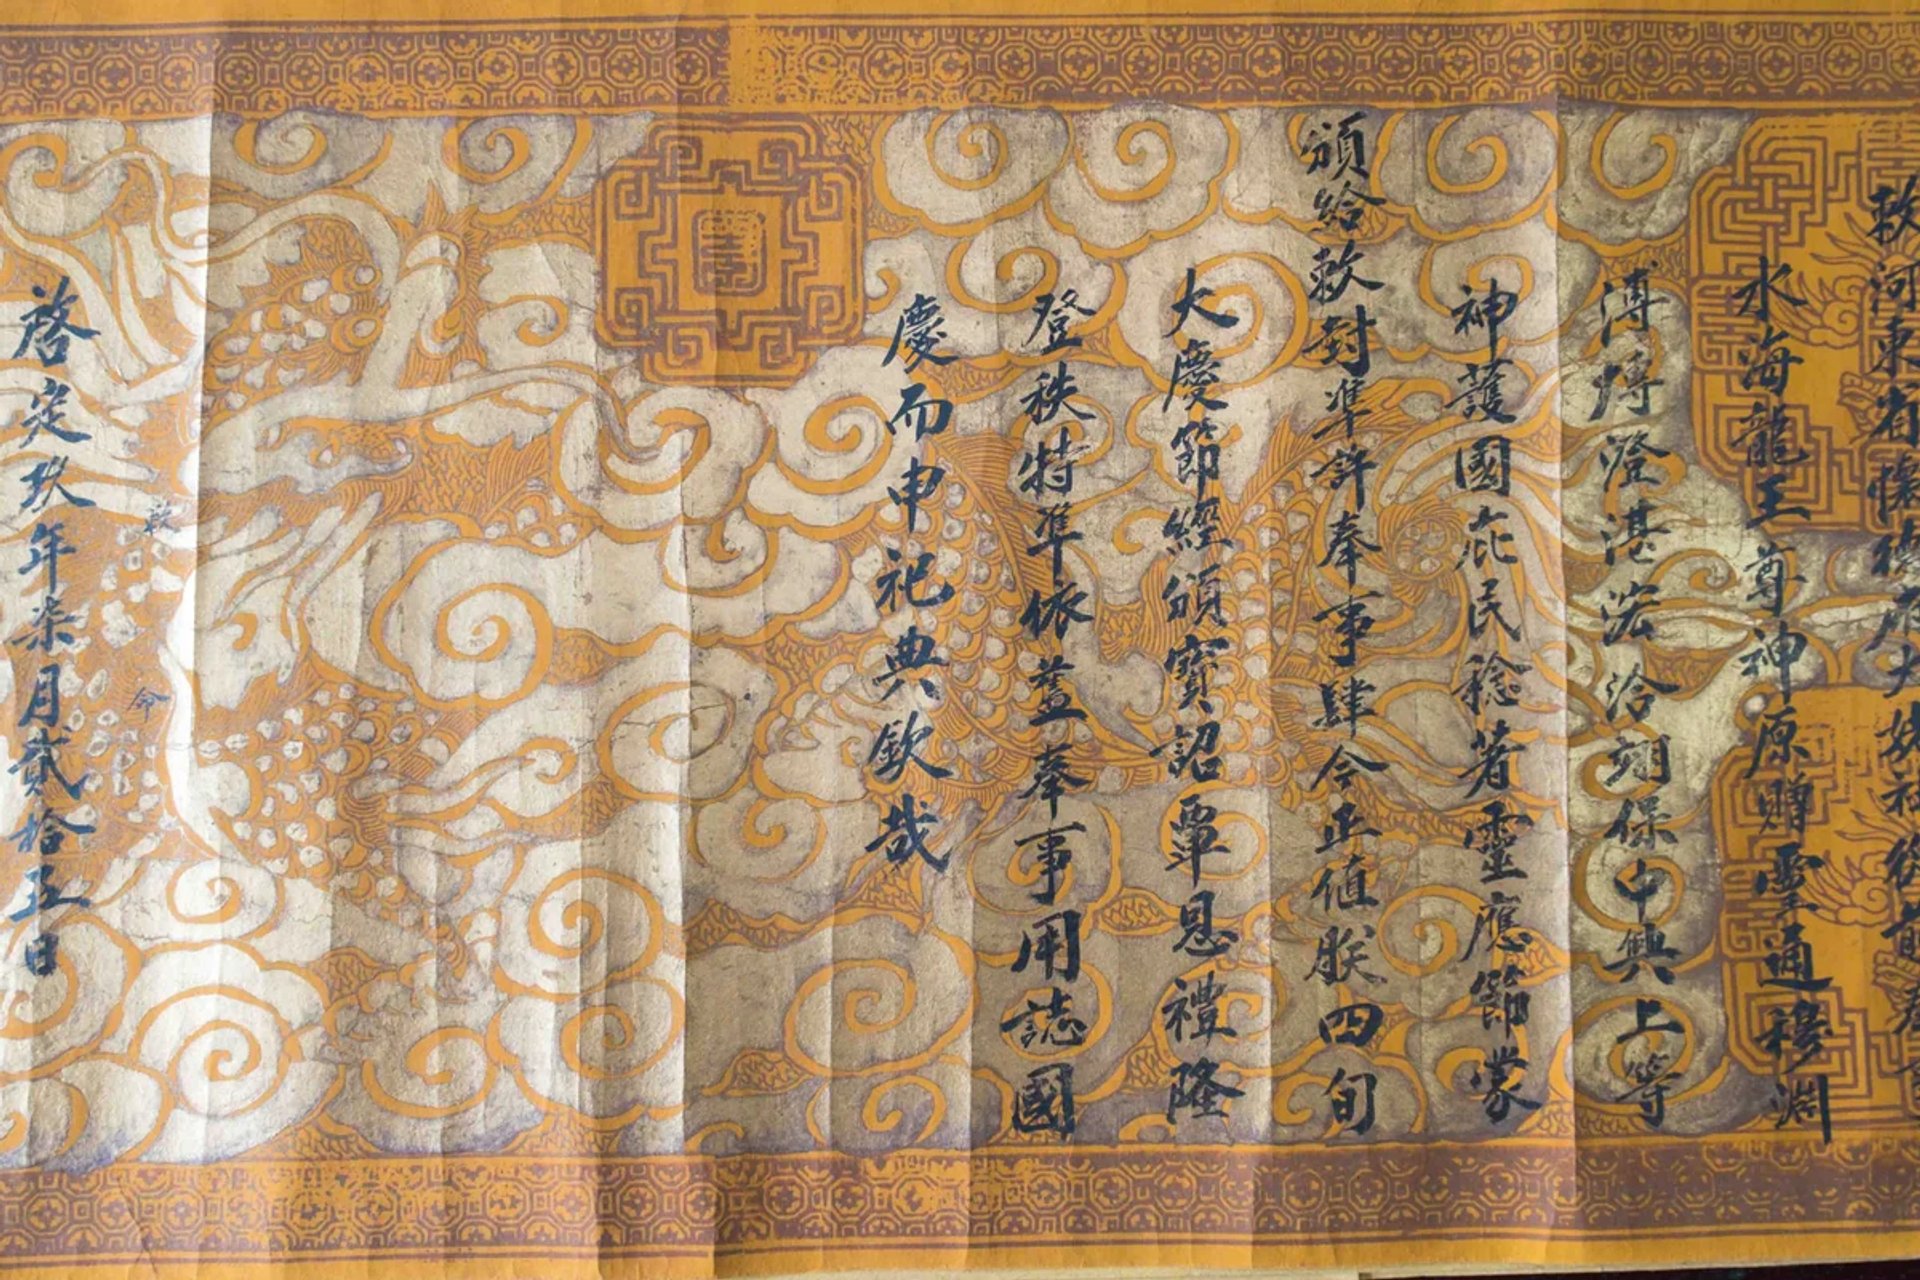 敕河東省懷德府大姚社從前奉事
水海龍王尊神原贈靈通穆淵
溥博澄湛浤洽翊保中興上等
神護國庇民稔著靈應節蒙
頒給敕封準許奉事肆今正值朕四旬
大慶節經頒寶詔覃恩禮隆
登秩特準依舊奉事用誌國
慶而申祀典欽哉
敕命
啓定玖年柒月貳拾五日